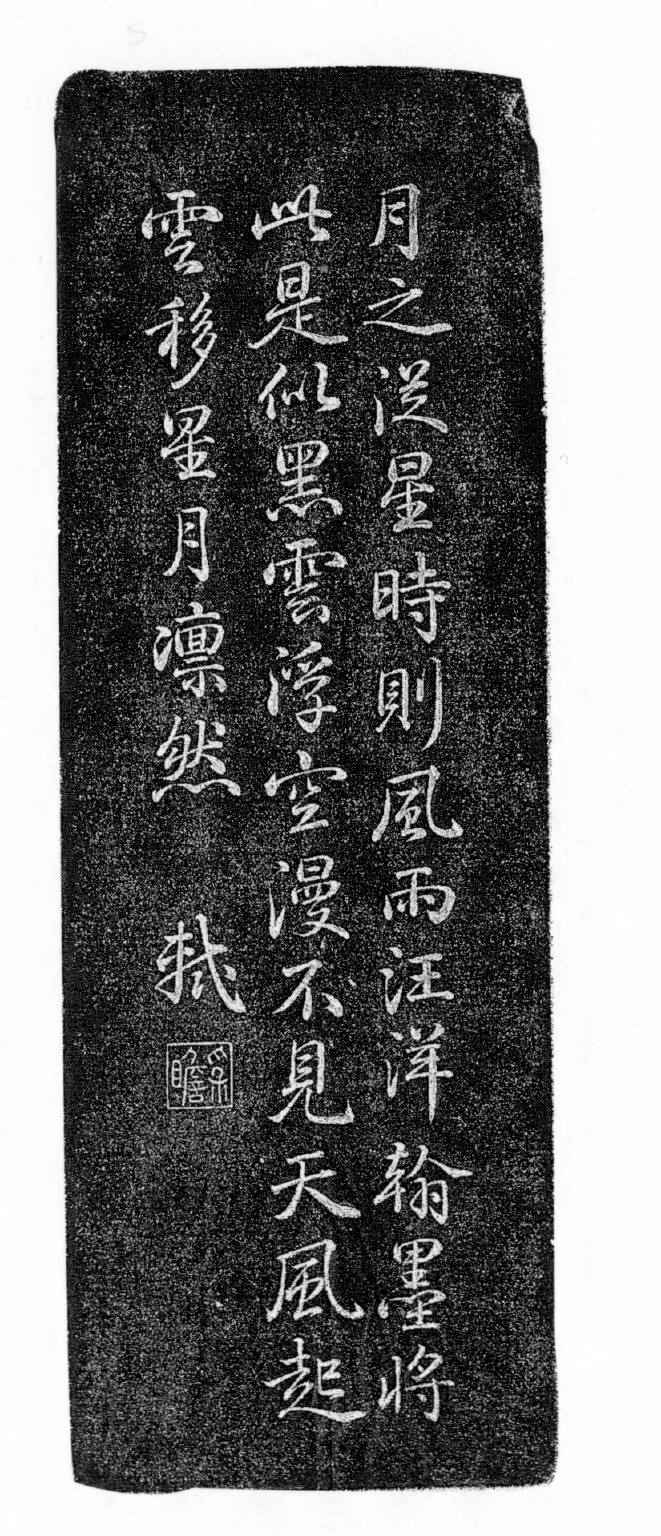 月之從星時則風雨汪洋翰墨將
此是似黑雲浮空漫不見天風起
雲移星月凛然 軾